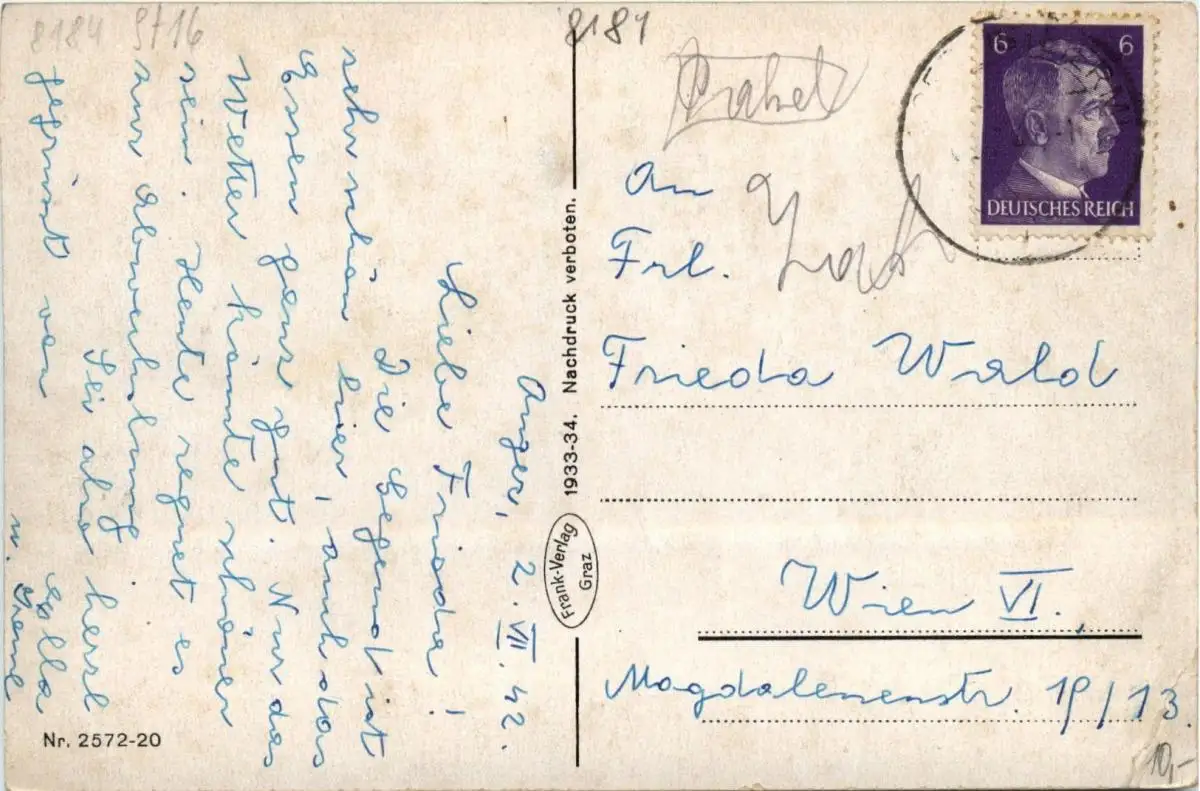 8184 St16
8184
Anger, 2. VII. 42.
Liebe Frieda!
Die Gegend ist
sehr schön hier, auch das
Essen ganz gut. Nur das
Wetter könnte schöner
sein. Heute regnet es
zur Abwechslung.
Sei also herzl
gegrüsst von
Ella
u. Irene
Nr. 2572-20
Frank-Verlag
Graz
1933-34. Nachdruck verboten.
6 6
DEUTSCHES REICH
An
Frl.
Frieda Wald
Wien VI.,
Magdalenenstr. 19/13
10,-